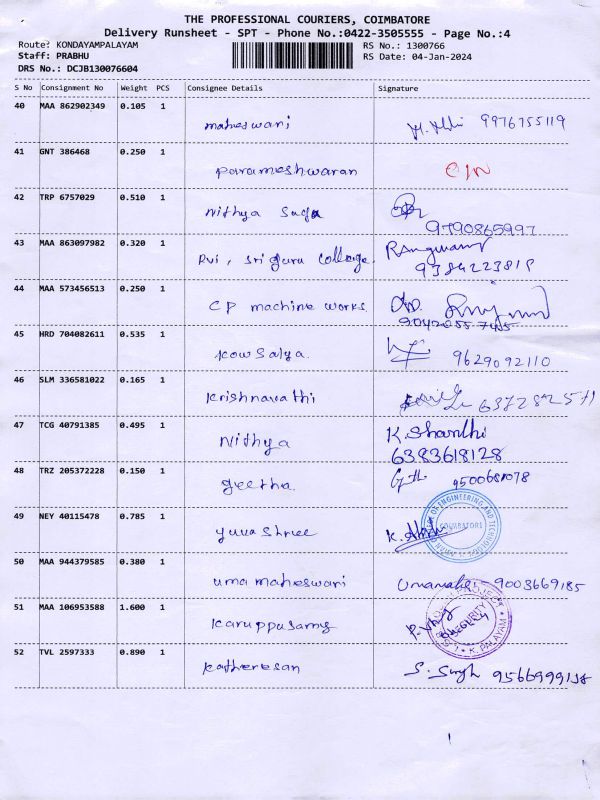 THE PROFESSIONAL COURIERS, COIMBATORE
Delivery Runsheet - SPT - Phone No.:0422-3505555 - Page No.:4
Route: KONDAYAMPALAYAM RS No.: 1300766
Staff: PRABHU RS Date: 04-Jan-2024
DRS No.: DCJB130076604
S No Consignment No Weight PCS Consignee Details Signature
40 MAA 862902349 0.105 1
maheswari 9976755119
41 GNT 386468 0.250 1
parameshwaran
42 TRP 6757029 0.510 1
Nithya
9790865997
43 MAA 863097982 0.320 1
Pvi, sri guru college.
44 MAA 573456513 0.250 1
CP machine works
45 HRD 704082611 0.535 1
Kowsalya. 9629092110
46 SLM 336581022 0.165 1
Krishnavathi
47 TCG 40791385 0.495 1 K. Shanthi
Nithya 6383618128
48 TRZ 205372228 0.150 1
geetha. 9500681078
49 NEY 40115478 0.785 1
yuva shree
50 MAA 944379585 0.380 1
uma maheswari 9003669185
51 MAA 106953588 1.600 1
Karuppusamy
SECURITY
K. PALAYAM
52 TVL 2597333 0.890 1
Katheresan S. Singh